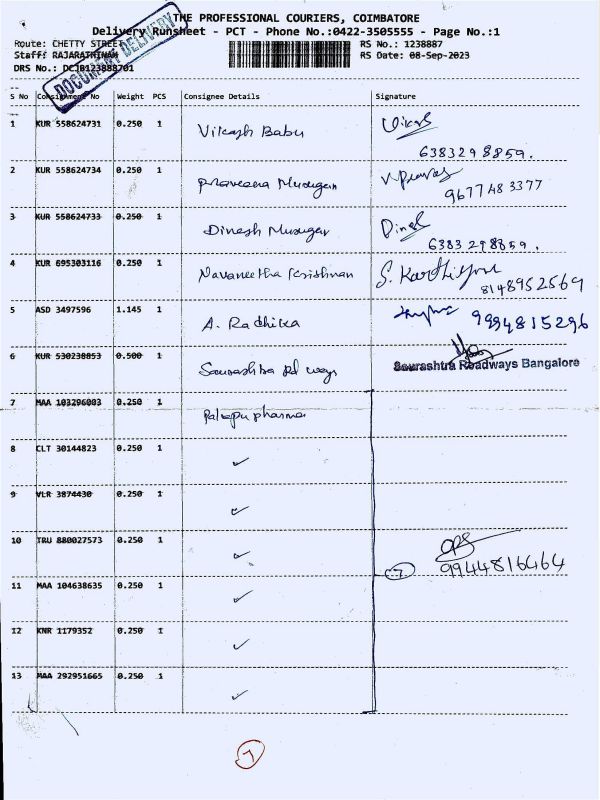 THE PROFESSIONAL COURIERS, COIMBATORE
Delivery Runsheet - PCT - Phone No.:0422-3505555 - Page No.:1
Route: CHETTY STREET RS No.: 1238887
Stafff RAJARATHINAM RS Date: 08-Sep-2023
DRS No.: DCJB123888701
DOCUMENT DELIVERY
S No Consignment No Weight PCS Consignee Details Signature
1 KUR 558624731 0.250 1 Vikash Babu
6383298859.
2 KUR 558624734 0.250 1 Praveena Murugan
9677483377
3 KUR 558624733 0.250 1 Dinesh Murugan
6383298859.
4 KUR 695303116 0.250 1 Navaneetha Krishnan S. Karthiyini
8148952569
5 ASD 3497596 1.145 1 A. Radhika 9994815296
6 KUR 530238853 0.500 1 Sourashtra Rd ways Sourashtra Roadways Bangalore
7 MAA 103296003 0.250 1 pharma
8 CLT 30144823 0.250 1 ✓
9 VLR 3874430 0.250 1 ✓
10 TRU 880027573 0.250 1 ✓
7 9944816464
11 MAA 104638635 0.250 1 ✓
12 KNR 1179352 0.250 1 ✓
13 MAA 292951665 0.250 1 ✓
7